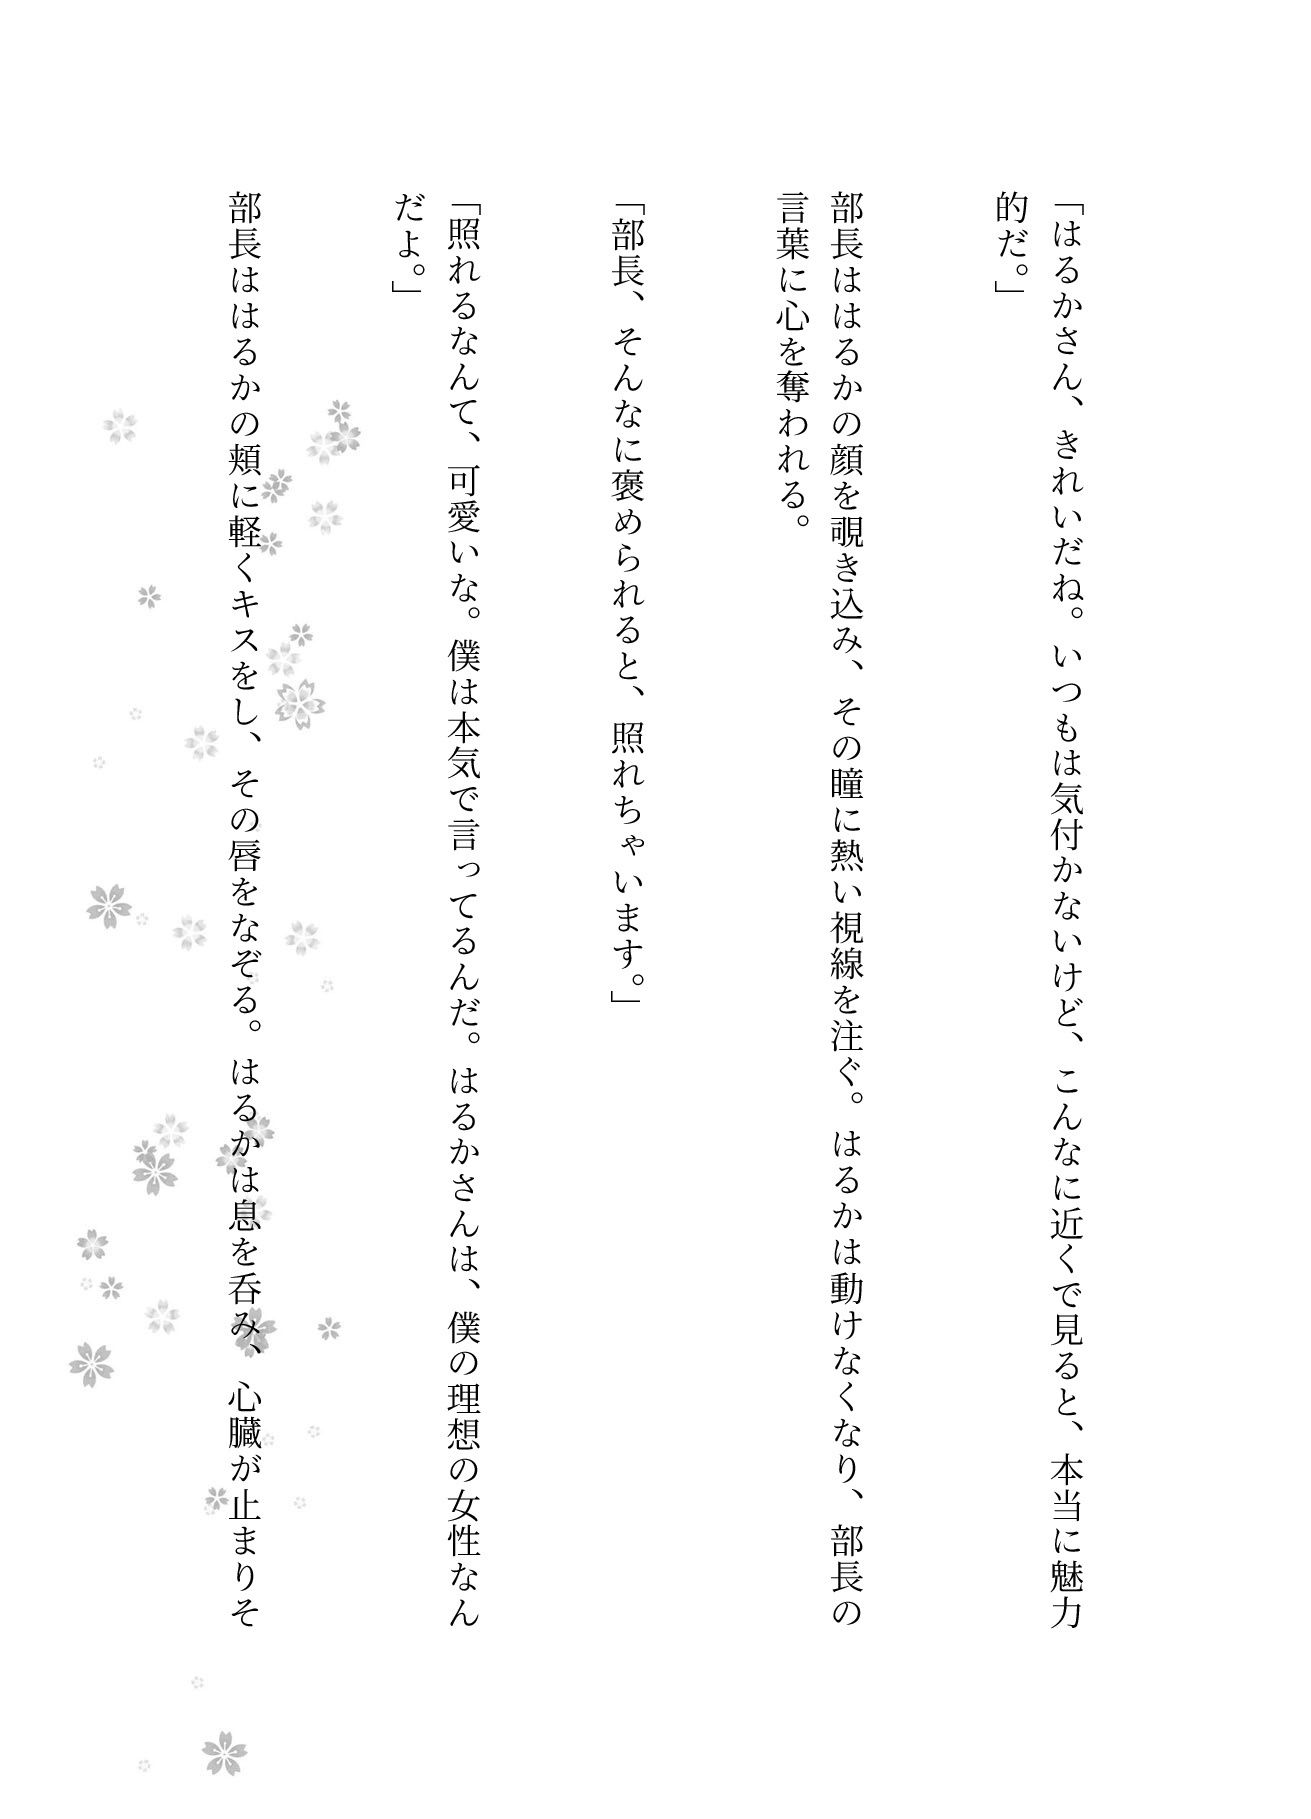 「はるかさん、きれいだね。いつもは気付かないけど、こんなに近くで見ると、本当に魅力
的だ。」
部長ははるかの顔を覗き込み、その瞳に熱い視線を注ぐ。はるかは動けなくなり、部長の
言葉に心を奪われる。
「部長、そんなに褒められると、照れちゃいます。」
「照れるなんて、可愛いな。僕は本気で言ってるんだ。はるかさんは、僕の理想の女性なん
だよ。」
部長ははるかの頬に軽くキスをし、その唇をなぞる。はるかは息を呑み、心臓が止まりそ